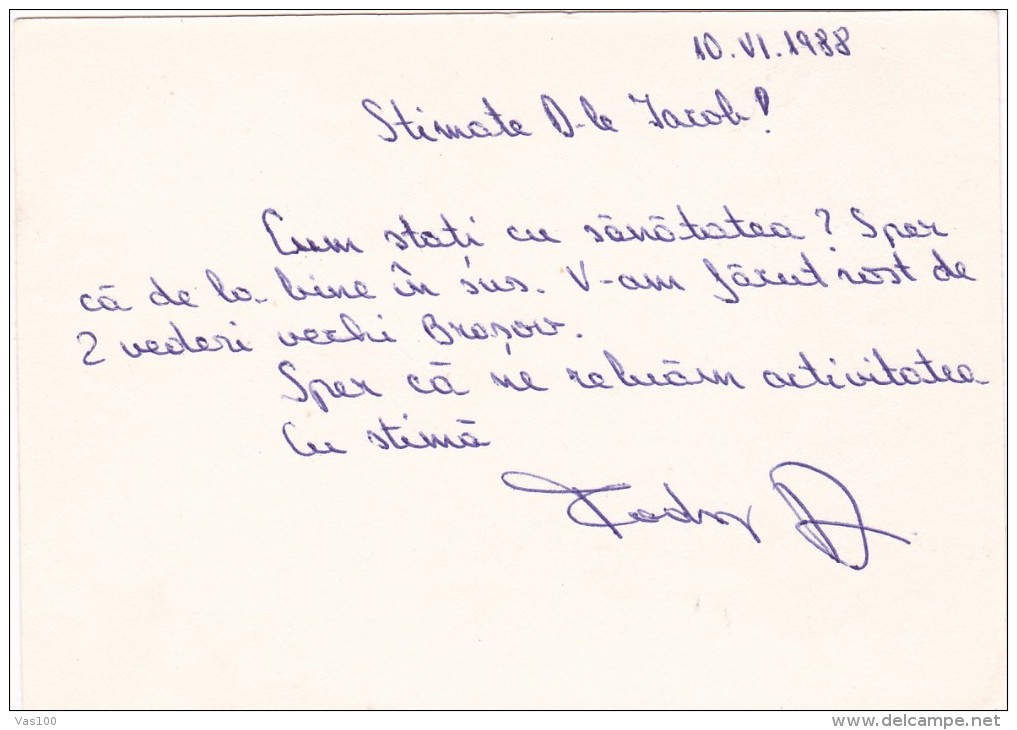 10.VI.1988
Stimate D-le Iacob!
Cum stați cu sănătatea? Sper
că de la bine în sus. V-am făcut rost de
2 vederi vechi Brașov.
Sper că ne reluăm activitatea
Cu stimă
Todor D
Vas100
www.delcampe.net